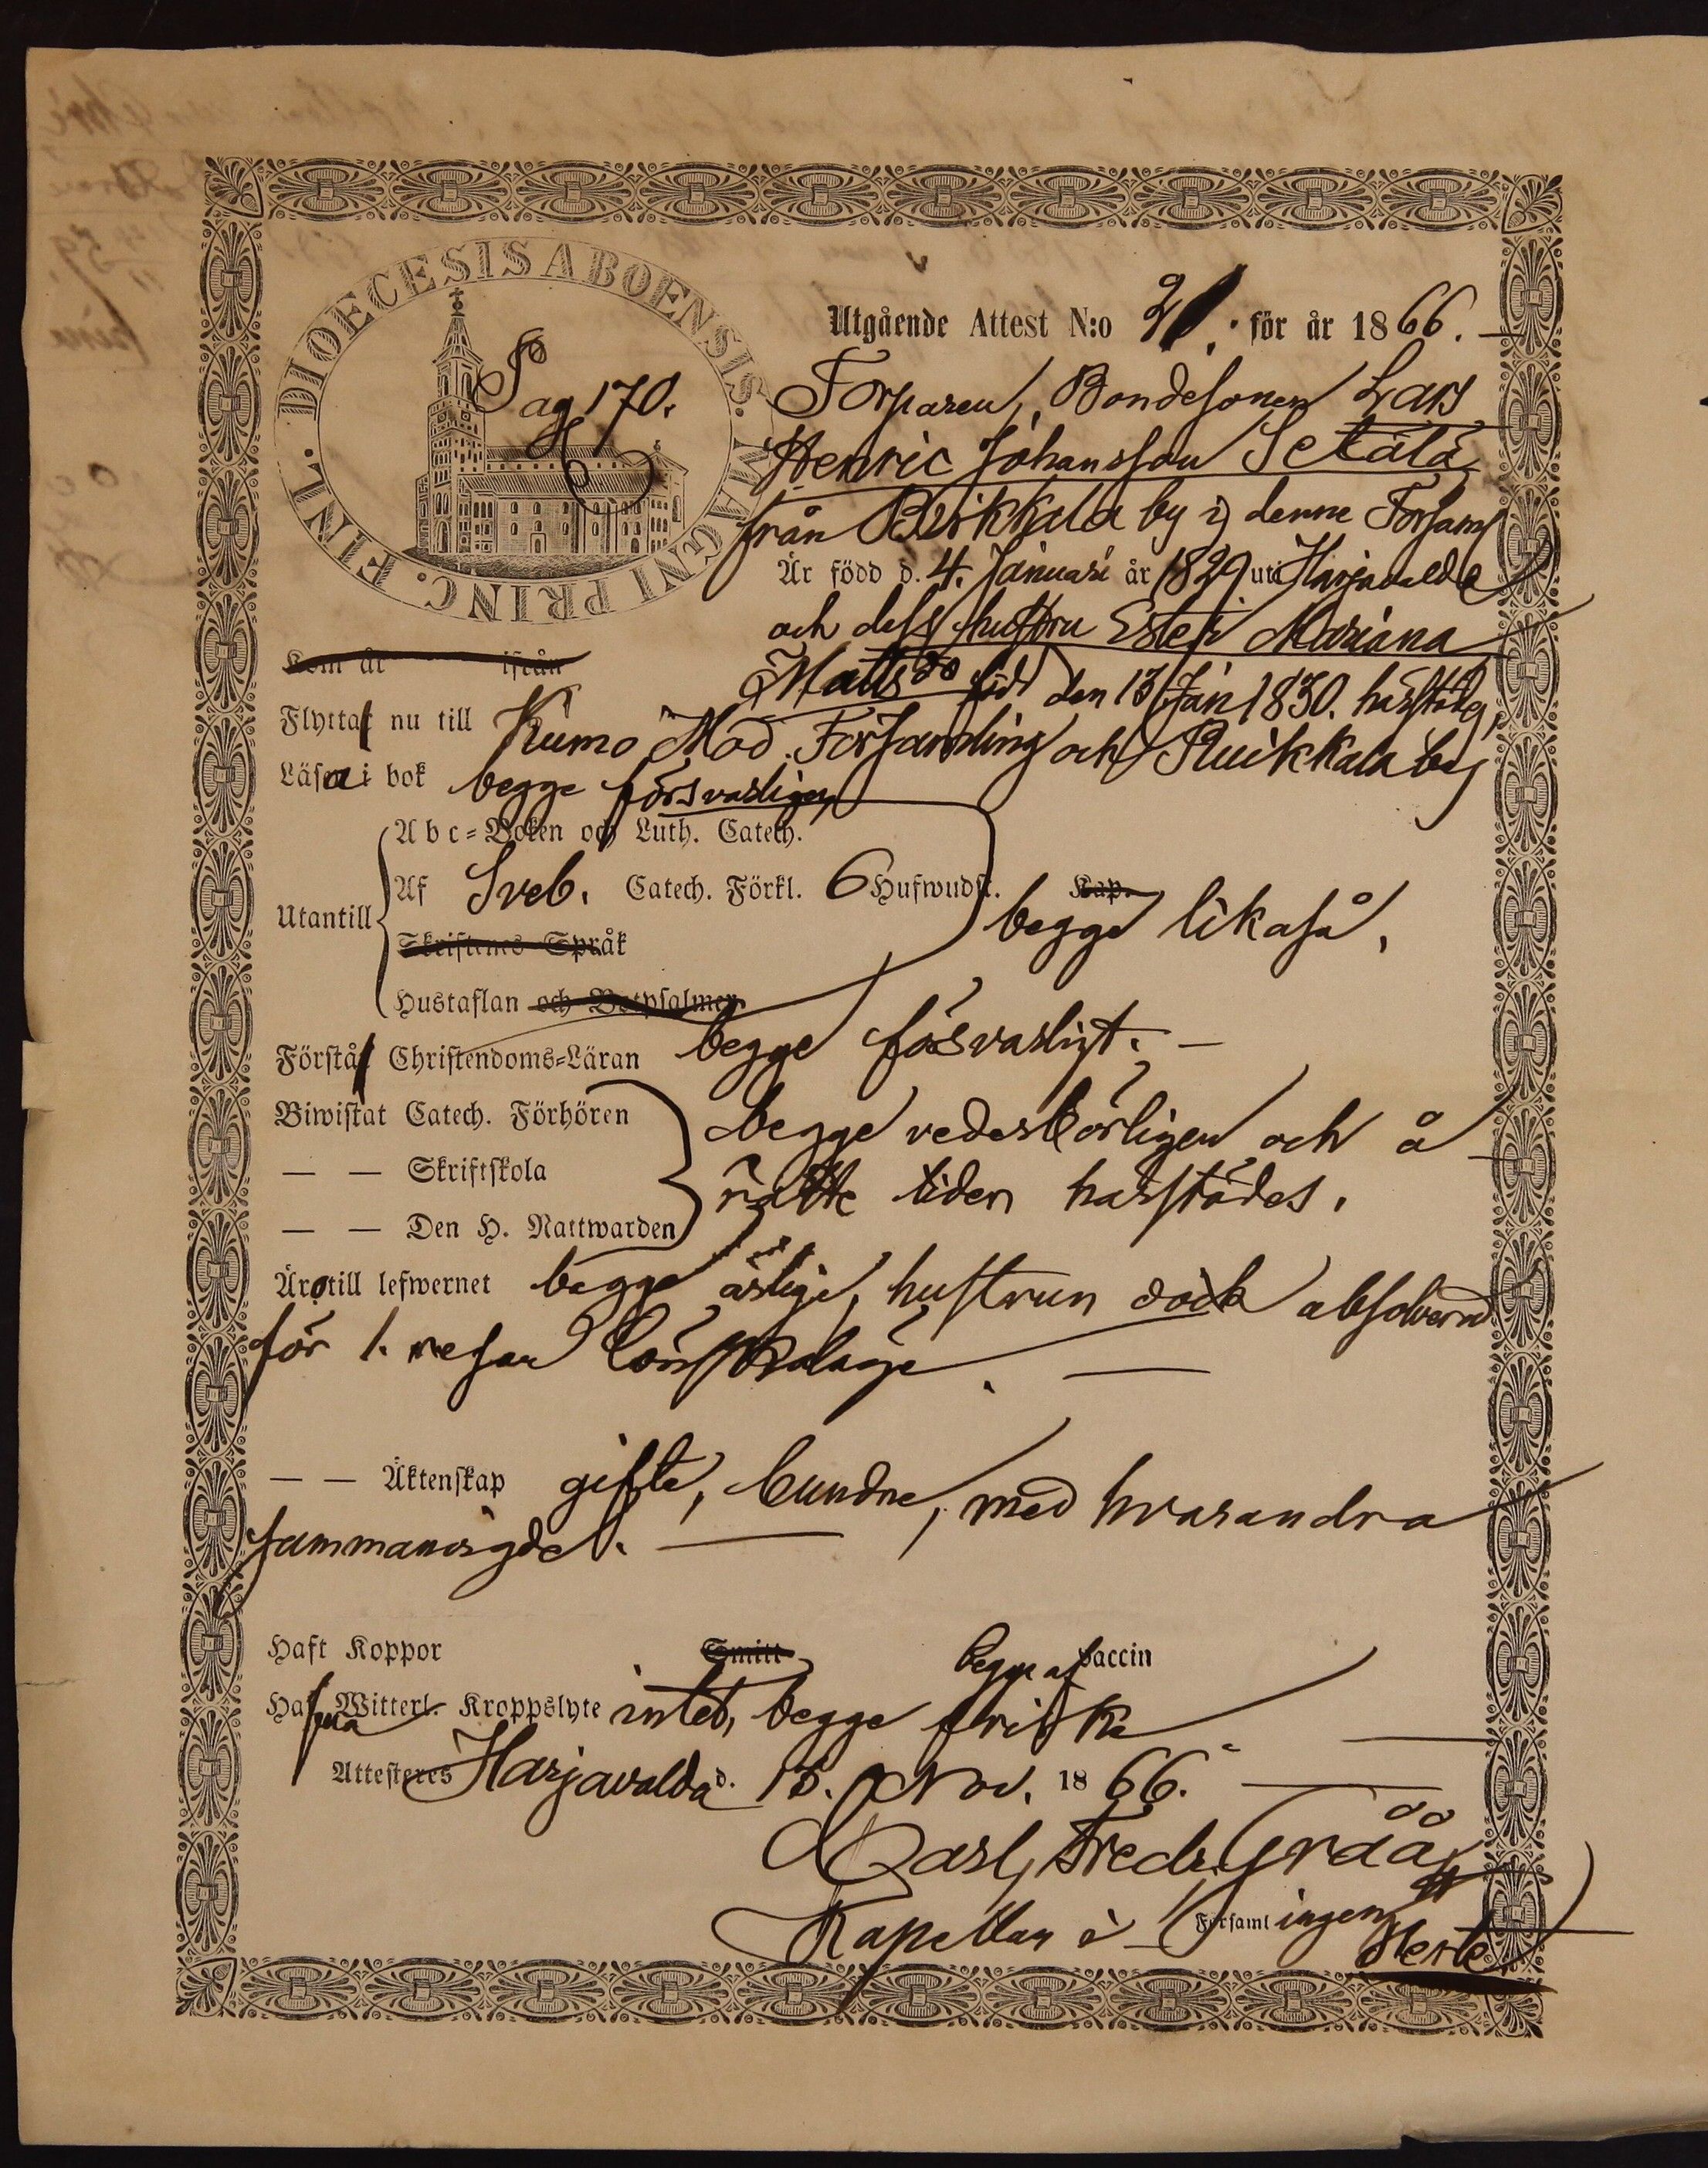 DIOECESIS ABOENSIS. MAGNI PRINC. FINL.
Pag 170.
Utgående Attest N:o 21. för år 1866.
Torparen, Bondesonen Lars
Henric Johansson Setälä
från Pirkkala by i denne Församl
Är född d. 4. Januari år 1829 uti Harjavalda
och dess hustru Ester Mariana
Matts do född den 13 Jan 1830. härstädes,
Kom år ifrån
Flytta nu till Kumo Mod. Församling och Ruikkala by
Läsa i bok begge försvarligen
Abc-Boken och Luth. Catech.
Utantill Af Sveb. Catech. Förkl. 6 Hufwudst. Kap. begge likaså.
Skriftenes Språk
Hustaflan och Botpsalmer
Förstå Christendoms-Läran begge försvarligt. —
Biwistat Catech. Förhören begge vederbörligen och å
— — Skriftskola rätte tiden härstädes.
— — Den H. Nattwarden
Äro till lefwernet begge ärlige, hustrun dock absolverad
för 1. resan lönskaläge. —
— — Äktenskap gifte, bundne, med hvarandra
sammanvigde. —
Haft Koppor Smitt begge af vaccin
Hafva Witterl. Kroppslyte intet, begge friska
Attesteres Harjavalda d. 15. Nov. 1866.
Carl Fredr. Gråå
Kapellan i Församlingen